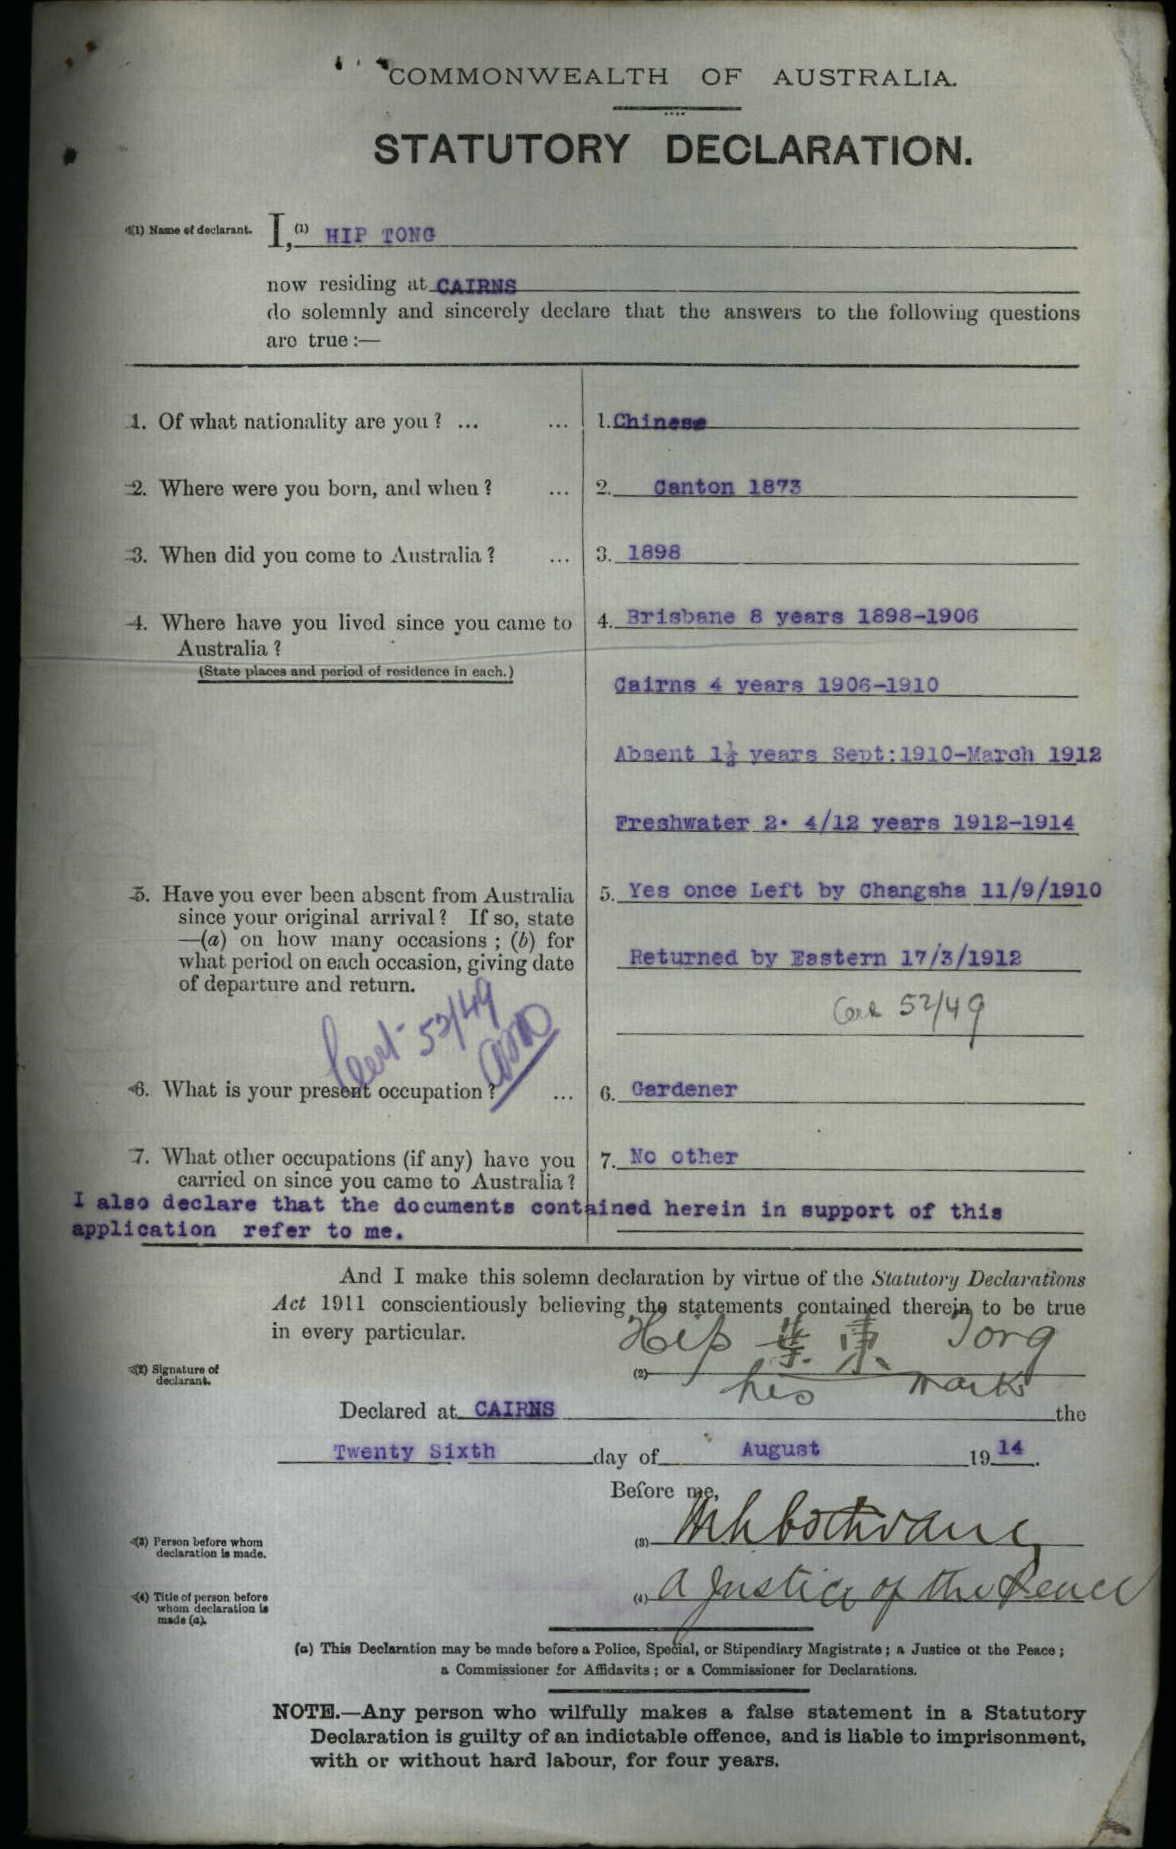 COMMONWEALTH OF AUSTRALIA.
STATUTORY DECLARATION.
(1) Name of declarant. I,(1) HIP TONG
now residing at CAIRNS
do solemnly and sincerely declare that the answers to the following questions
are true :—
1. Of what nationality are you ? ... ... 1. Chinese
2. Where were you born, and when ? ... 2. Canton 1873
3. When did you come to Australia ? ... 3. 1898
4. Where have you lived since you came to 4. Brisbane 8 years 1898-1906
Australia ?
(State places and period of residence in each.)
Cairns 4 years 1906-1910
Absent 1½ years Sept:1910-March 1912
Freshwater 2. 4/12 years 1912-1914
5. Have you ever been absent from Australia 5. Yes once Left by Changsha 11/9/1910
since your original arrival ? If so, state
—(a) on how many occasions ; (b) for
what period on each occasion, giving date Returned by Eastern 17/3/1912
of departure and return.
Cert 52/49
Cert 52/49
6. What is your present occupation ? ... 6. Gardener
7. What other occupations (if any) have you 7. No other
carried on since you came to Australia ?
I also declare that the documents contained herein in support of this
application refer to me.
And I make this solemn declaration by virtue of the Statutory Declarations
Act 1911 conscientiously believing the statements contained therein to be true
in every particular.
Hip 葉東 Tong
(2) Signature of (2)
declarant.
his mark
Declared at CAIRNS the
Twenty Sixth day of August 19 14.
Before me,
(3) Person before whom (3)
declaration is made.
(4) Title of person before (4) A Justice of the Peace
whom declaration is
made (a).
(a) This Declaration may be made before a Police, Special, or Stipendiary Magistrate ; a Justice of the Peace ;
a Commissioner for Affidavits ; or a Commissioner for Declarations.
NOTE.—Any person who wilfully makes a false statement in a Statutory
Declaration is guilty of an indictable offence, and is liable to imprisonment,
with or without hard labour, for four years.